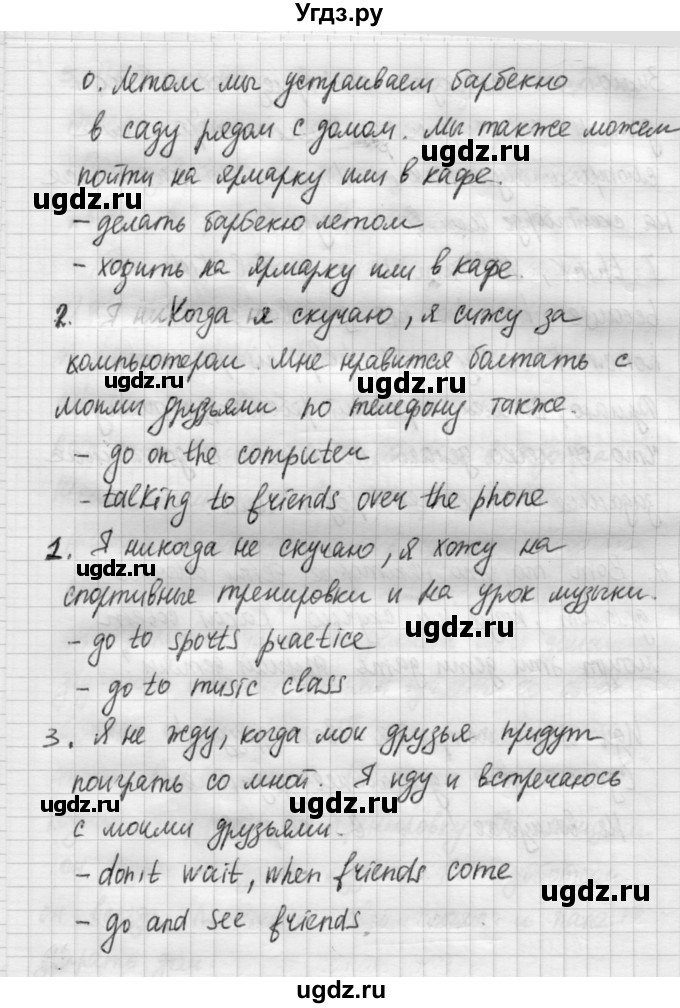 Угдз.ру
0. Летом мы устраиваем барбекю
в саду рядом с домом. Мы также можем
пойти на ярмарку или в кафе.
- делать барбекю летом
- ходить на ярмарку или в кафе.
2. Я никогда не скучаю, я сижу за
компьютером. Мне нравится болтать с
моими друзьями по телефону также.
- go on the computer
- talking to friends over the phone
1. Я никогда не скучаю, я хожу на
спортивные тренировки и на урок музыки.
- go to sports practice
- go to music class
3. Я не жду, когда мои друзья придут
поиграть со мной. Я иду и встречаюсь
с моими друзьями.
- don't wait, when friends come
- go and see friends.
ugdz.ru
ugdz.ru
ugdz.ru
ugdz.ru
ugdz.ru
ugdz.ru
ugdz.ru
ugdz.ru
ugdz.ru
ugdz.ru